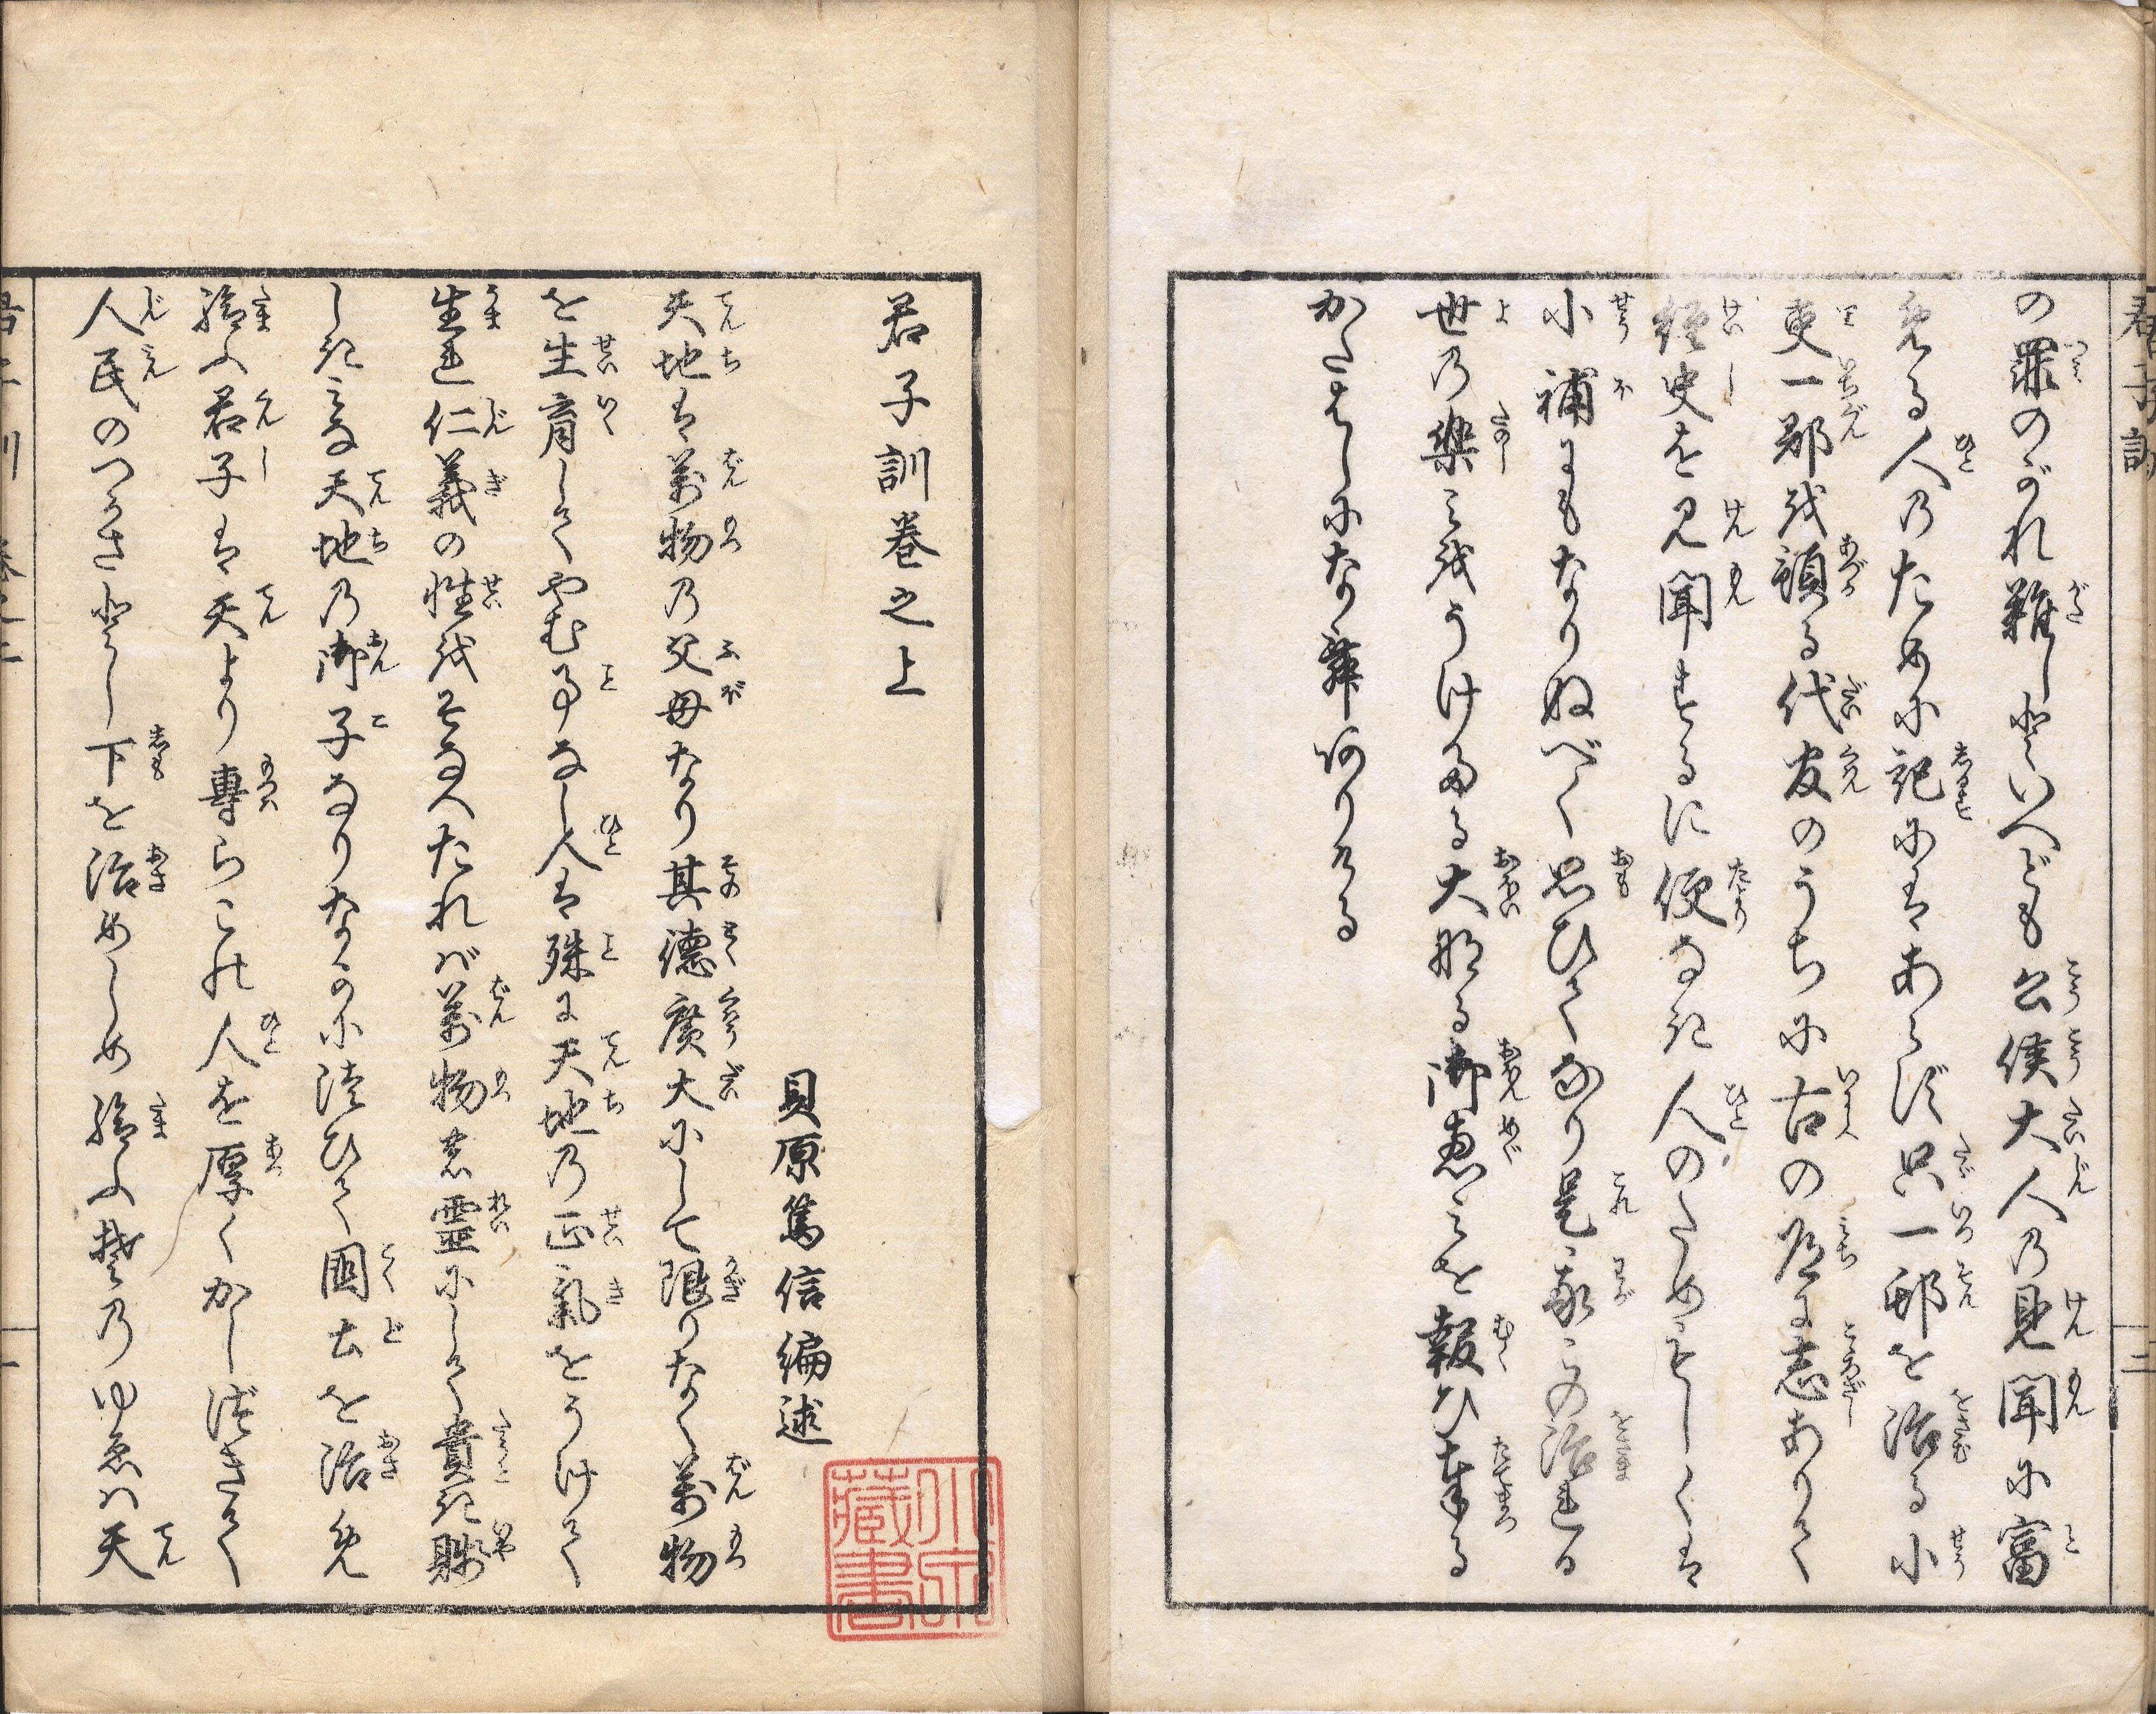 の罪のがれ難しといへども公侯大人乃見聞に富
める人乃ために記にはあらず只一邨を治る小
吏一郡を預る代官のうちに古の道に志ありて
経史を見聞するに便なき人のためもしくは
小補にもなりぬべく思ひてなり是我この治れる
世乃楽みをうけたる大那る御恵みを報ひ奉る
かたはしになか
君子訓巻之上
貝原篤信編述
天地は萬物乃父母なり其徳廣大にして限りなく萬物
を生育してやむ事なし人は殊に天地乃正氣をうけて
生れ仁義の性をそなへたれば萬物の霊にして貴き賎
しきみな天地乃御子なりなかに法ひて國土を治め
給ふ君子は天より専らこれ人を厚くかしづきて
人民のつかさとし下を治めしめ給ふ其乃ゆゑハ天
君子訓
小
藏書